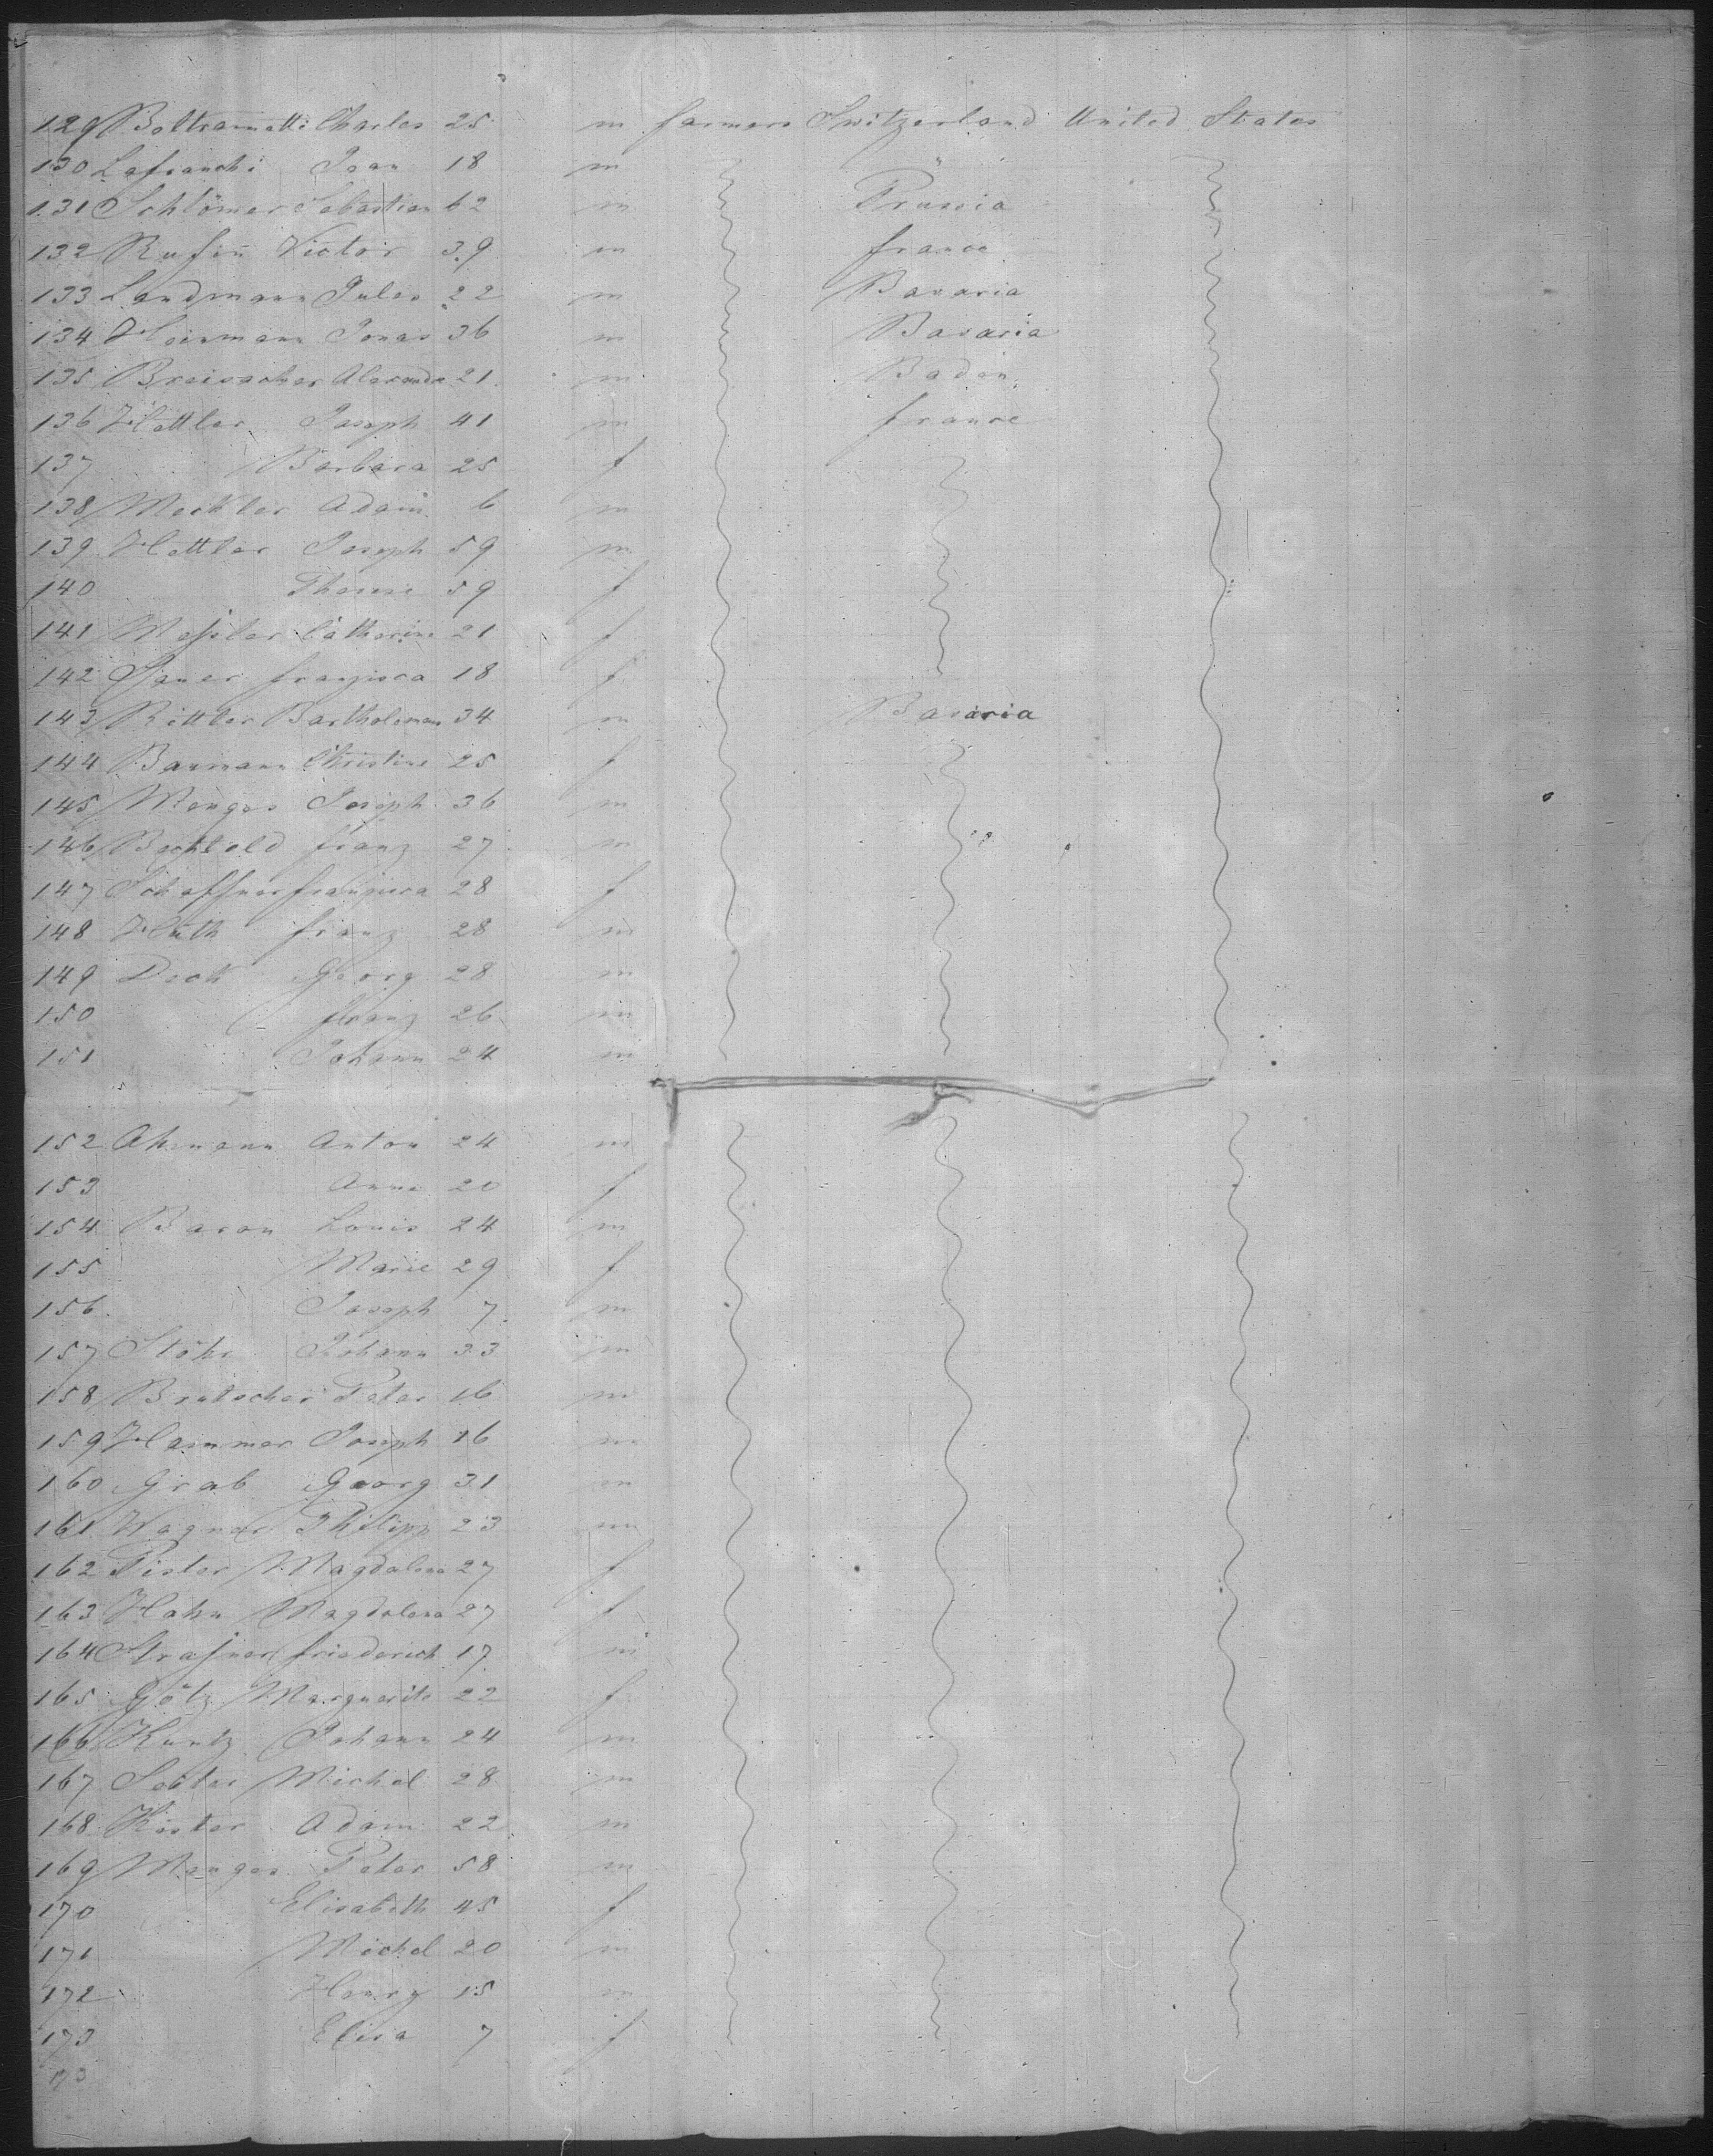 129 Boltramelli Charles 25 m farmers Switzerland United States
130 Lafranchi Jean 18 m "
131 Schlömer Sebastian 62 m Prussia
132 Rufin Victor 39 m france
133 Landmann Jules 22 m Bavaria
134 Heinmann Jonas 36 m Bavaria
135 Breisacher Alexandre 21 m Baden
136 Hettler Joseph 41 m france
137 Barbara 25 f
138 Meckler Adam 6 m
139 Hettler Joseph 59 m
140 Therese 59 f
141 Catherine 21 f
142 franzisca 18 f
143 Rittler Bartholomeus 34 m Bavaria
144 Baumann Christine 25 f
145 Menges Joseph 36 m
146 Bechtold franz 27 m
147 Schaffner franzisca 28 f
148 Huth franz 28 m
149 Deck Georg 28 m
150 franz 26 m
151 Johann 24 m
152 Ahmann Anton 24 m
153 Anna 20 f
154 Baron Louis 24 m
155 Marie 29 f
156 Joseph 7 m
157 Stöhr Johann 33 m
158 Brutscher Peter 16 m
159 Hammer Joseph 16 m
160 Grab Georg 31 m
161 Wagner Philipp 23 m
162 Pister Magdalena 27 f
163 Hahn Magdalena 27 f
164 Straßner friederich 17 m
165 Götz Marguerite 22 f
166 Kuntz Johann 24 m
167 Michel 28 m
168 Kister Adam 22 m
169 Menges Peter 58 m
170 Elisabeth 45 f
171 Michel 20 m
172 Henry 15 m
173 Elisa 7 f
173